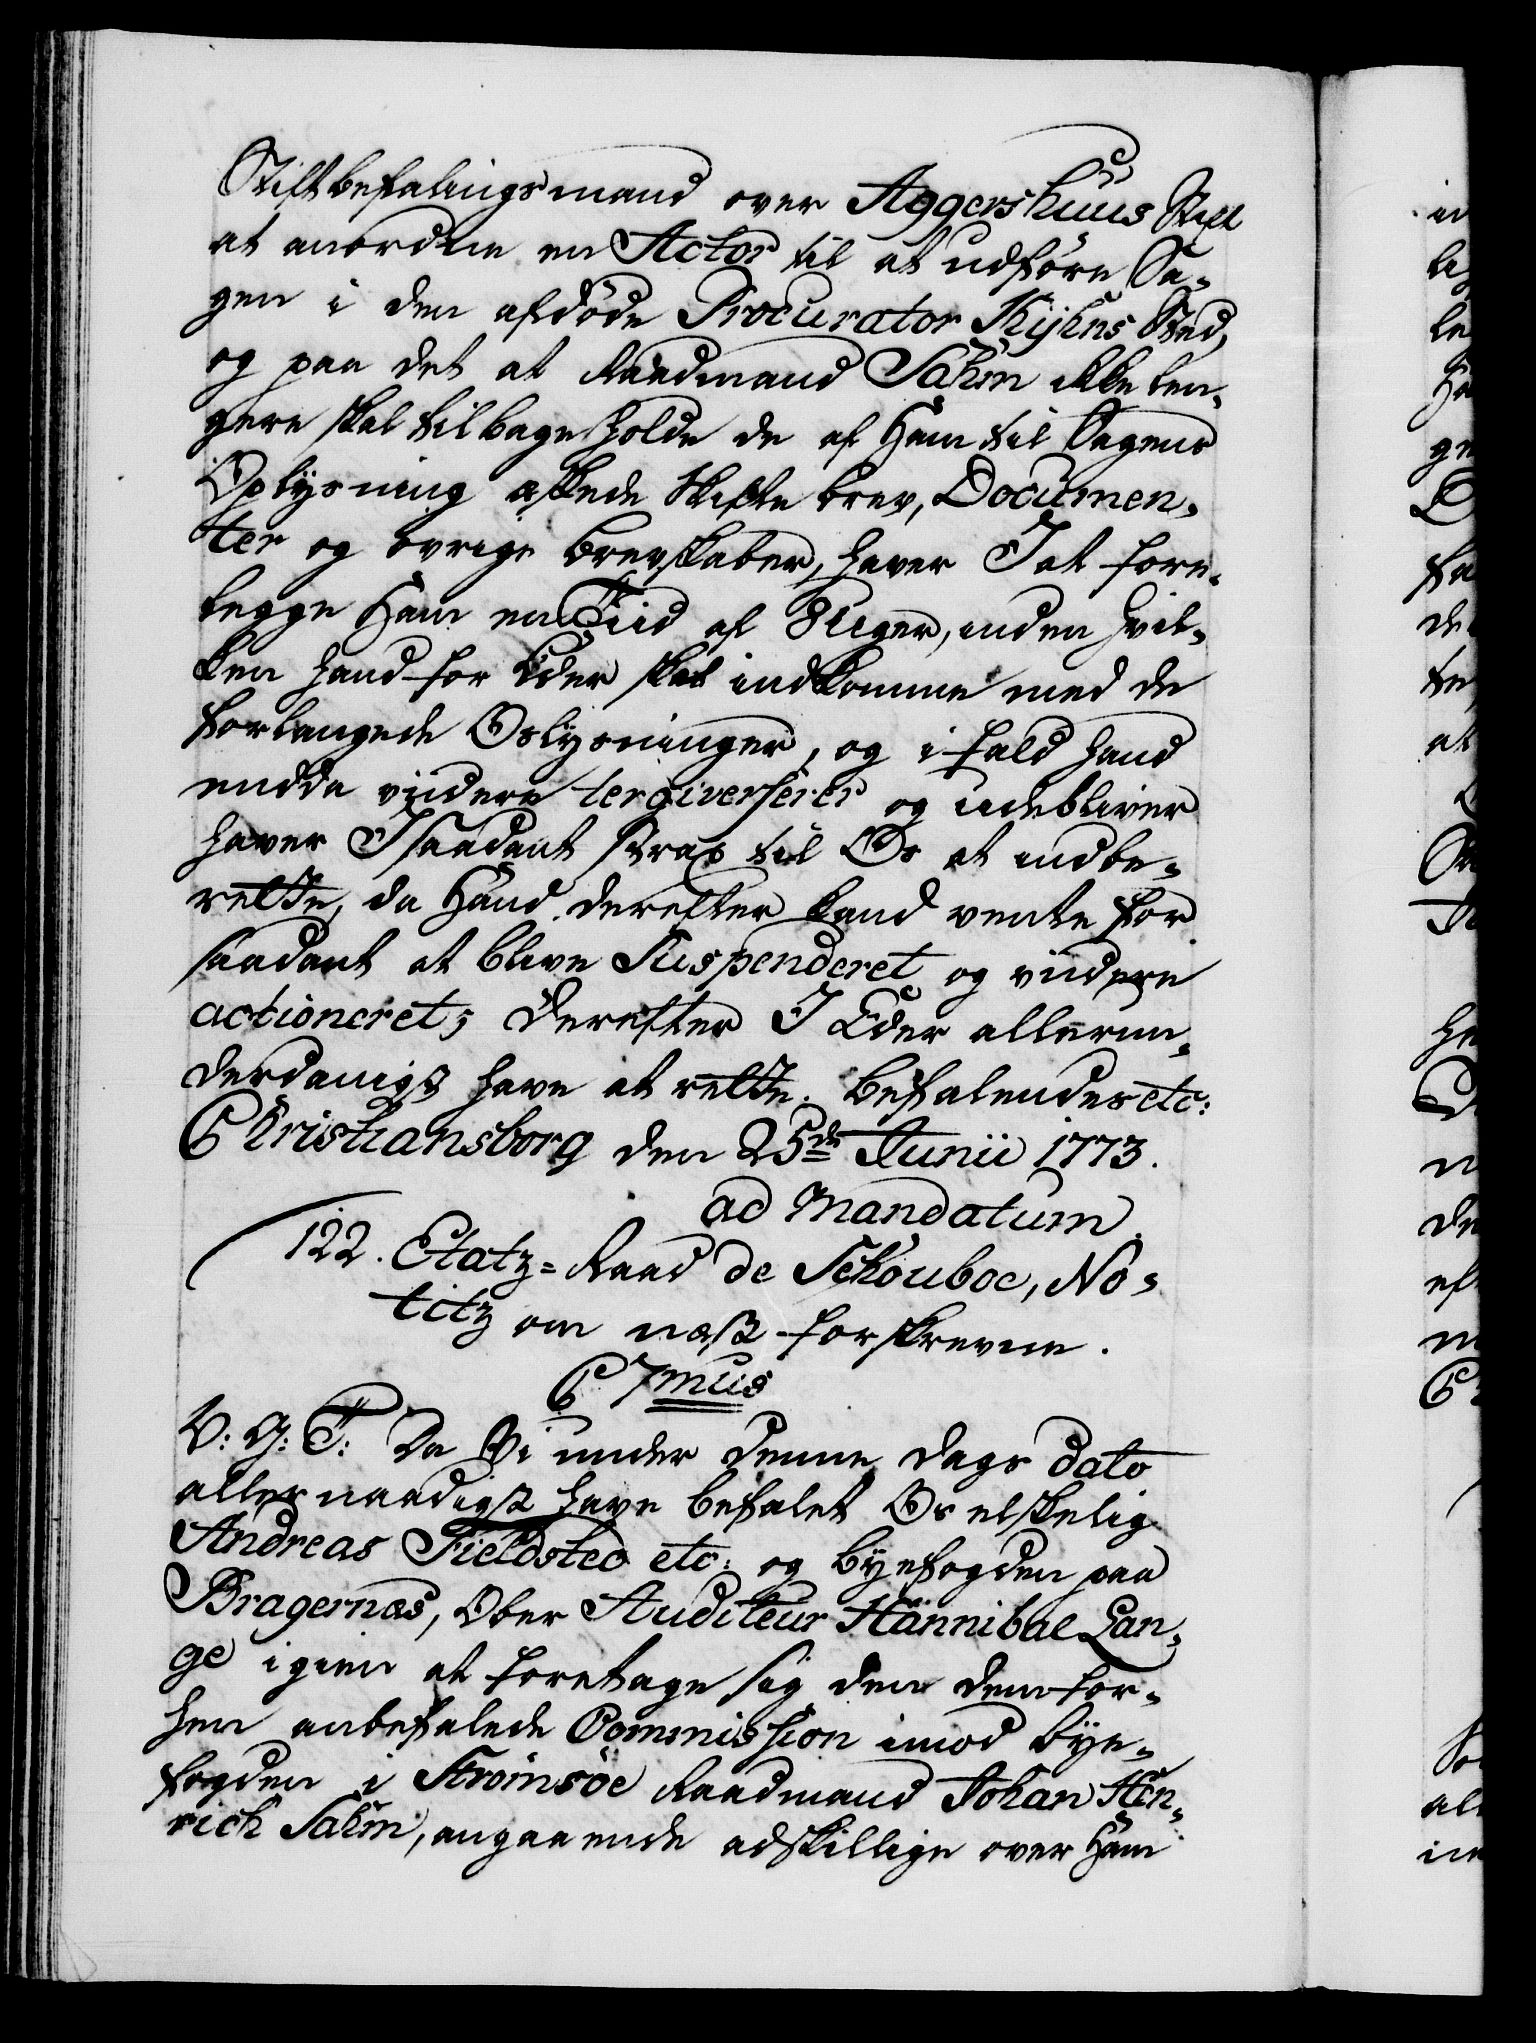 Stiftbefalingsmand over Aggershuus Stift
at anordne en Actor til at udføre Sa-
gen i den afdøde Procurator Kyhns Sted,
og paa det at Raadmand Sahm ikke len-
gere skal tilbageholde de af Ham til Sagens
Oplysning æskede Skifte brev, Documen-
ter og övrige brevskaber, haver I at fore-
legge Ham en Tiid af 8 Uger, inden hvil-
ken hand for Eder skal indkomme med de
forlangede Oslysninger, og i fald hand
endda viidere tergiverserer og udebliver
haver I saadant strax til Os at indbe-
rette, da Hand derefter kand vente for
saadant at blive Suspenderet og viidere
actioneret; Derefter I Eder allerun-
derdanigst have at rette. Befalendes etc:
Christiansborg den 25de Junii 1773.
ad Mandatum
122. Etatz-Raad de Schouboe, No-
titz om næst forskrevne.
C 7mus
V: G: T: Da Vi under Denne Dags dato
allernaadigst have befalet Os elskelig
Andreas Fieldsted etc: og byefogden paa
Bragernæs, Ober Auditeur Hannibal Lan-
ge igien at foretage sig den dem for-
hen anbefalede Commission imod bye-
fogden i Strømsöe Raadmand Johan Hen-
rich Sahm, angaaende adskillige over Ham